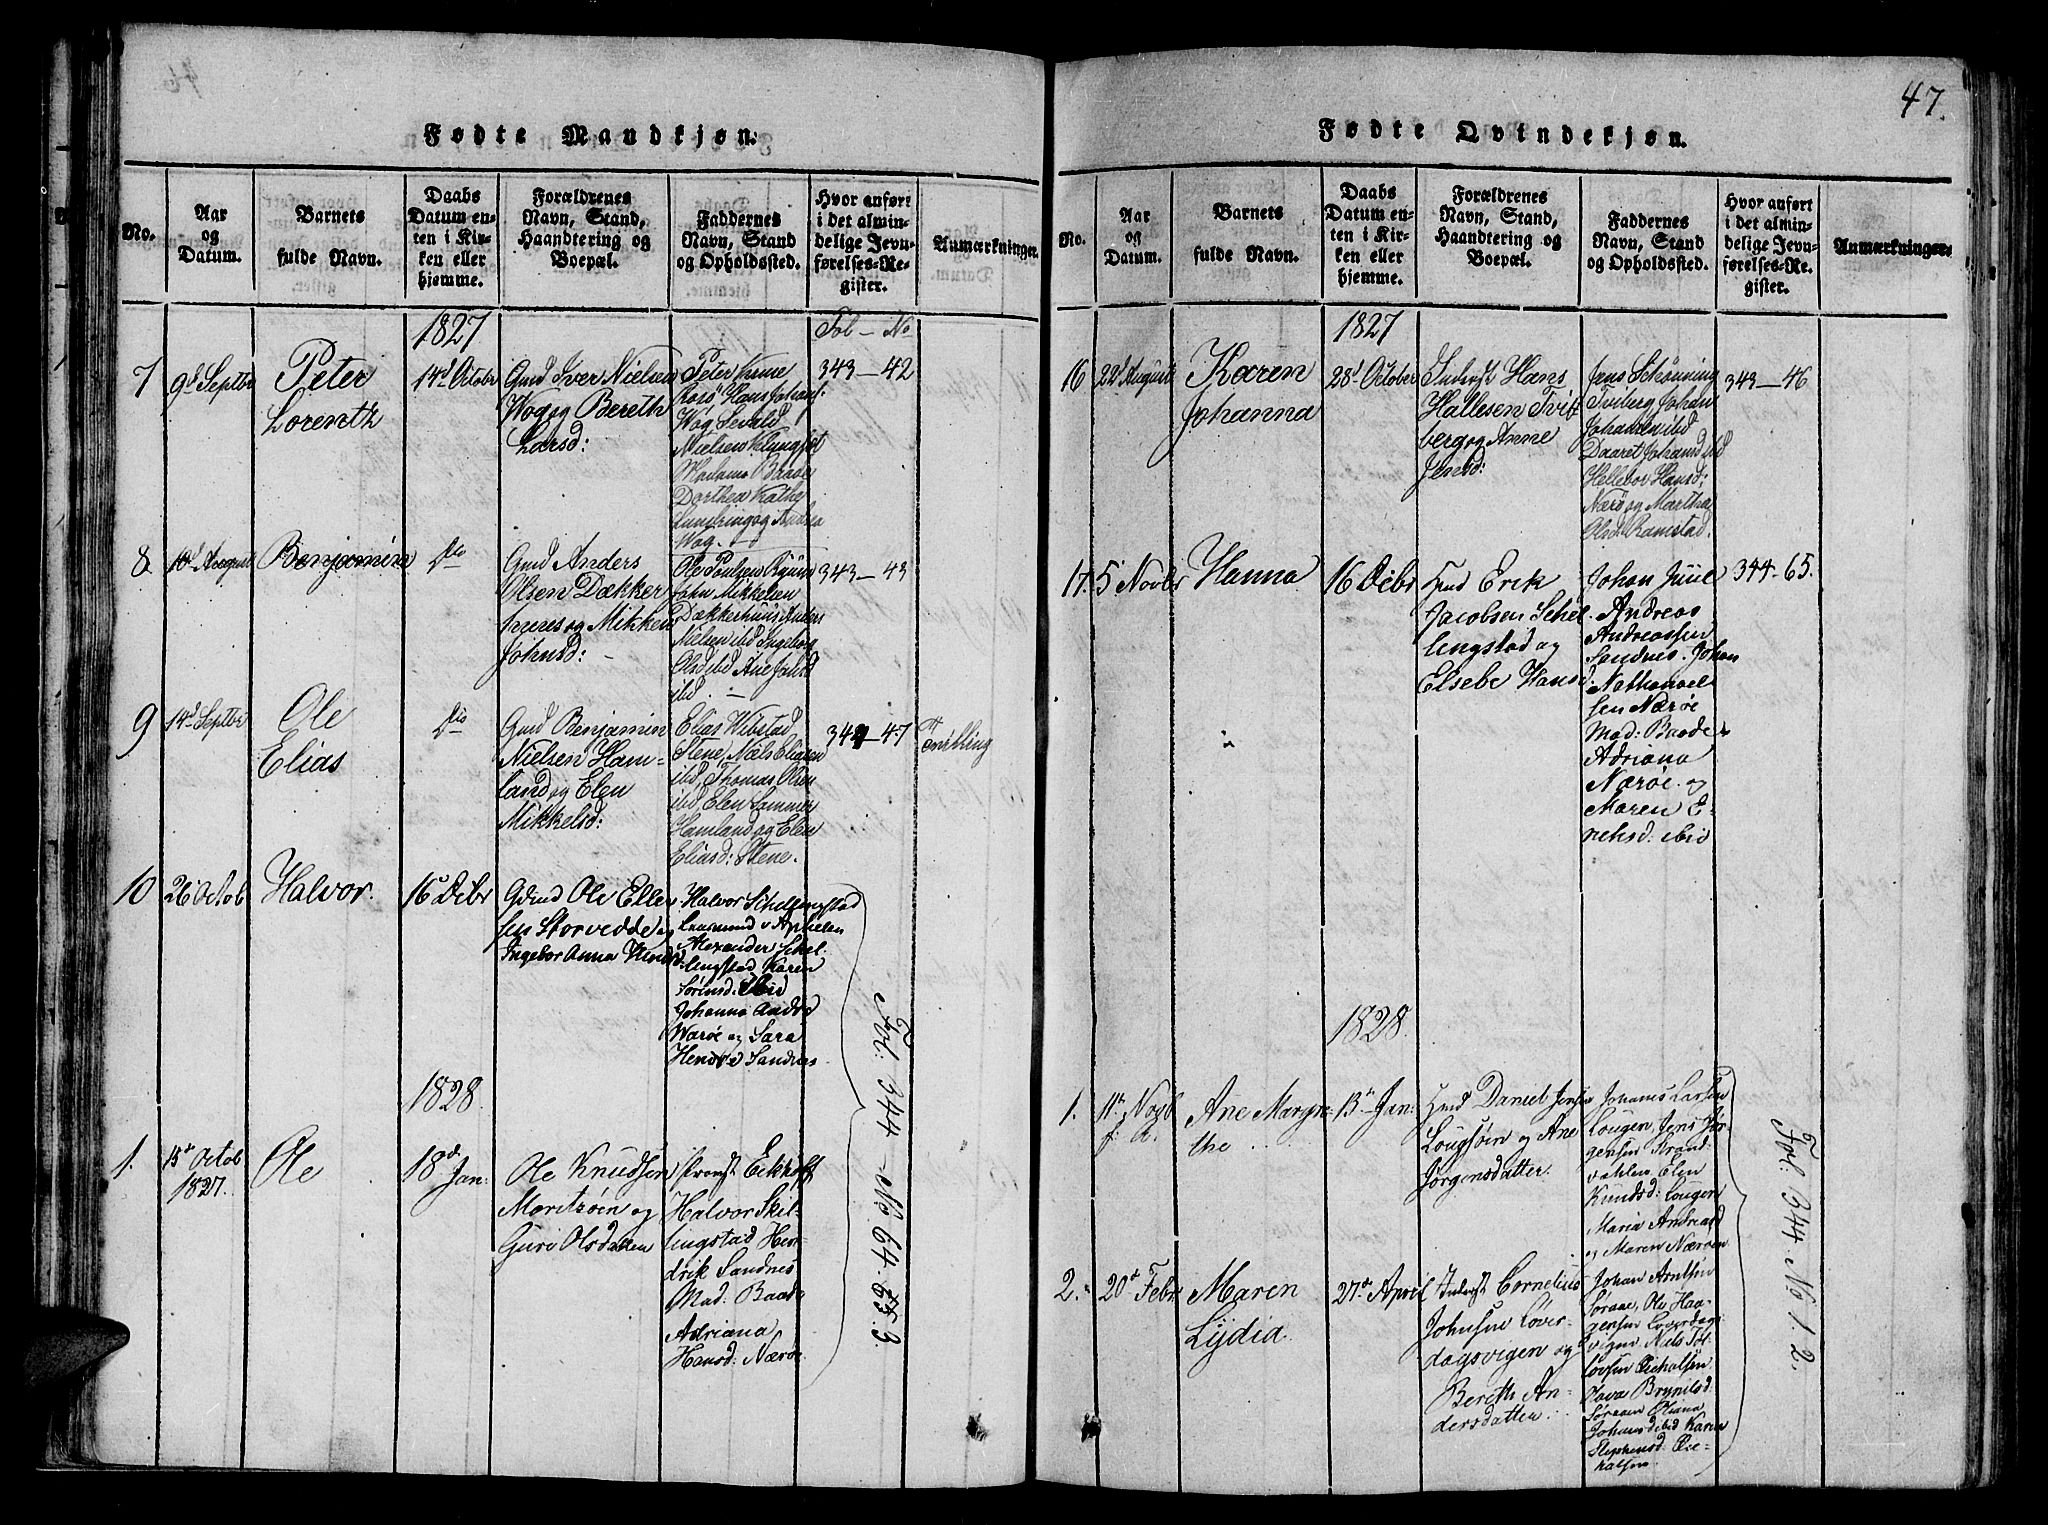 Fødte Mandkjøn.
No.
Aar og Datum.
Barnets fulde Navn.
Daabs Datum enten i Kirken eller hjemme.
Forældrenes Navn, Stand, Haandtering og Boepæl.
Faddernes Navn, Stand og Opholdssted.
Hvor anført i det almindelige Jevnførelses-Register.
Anmærkninger.
1827
Fol — No
7
9d Septbr
Peter
Lorentz
14d Octobr
Gmd Iver Nielsen
Wog og Bereth
Larsd:
Peter Kime
Rosö Hans Johans
Wog Sevald
Nielsen
Madame Baade
Dorthea Katha
Wog.
343 — 42
8
10d August
Benjamin
Do
Gmd Anders
Olsen Dækker
og Mikken
Johnsd:
Ole Poulsen
John Mikkelsen
Dækkerhuus Anders
Nielsen ibd Ingeborg
Olsd ibd Ane Johsd
ibd.
343 — 43
9
14d Septbr
Ole
Elias
Do
Gmd Benjamin
Nielsen Ham-
land og Elen
Mikkelsd:
Elias Wibstad
Stene, Niels Eliasen
ibd, Thomas Olsen
ibd, Elen Sommer
Hamland og Elen
Eliasd: Stene.
344 — 47
Tvilling
10
26 Octob
Halvor.
16 Decbr
Gdmd Ole Elle-
sen Storvedde og
Ingebor Anna
Halvor Schellingstad
Alexander Schel-
lingstad Karen
Sörensd: ibid
Johanna Andrd
Næröe og Sara
Sandnes
1828.
1.
15de Octob
1827.
Ole
18d Jan:
Ole Knudsen
Moritzöen og
Guri Olsdatten
Provst Eckhoff
Halvor Skil-
lingstad Hen-
drik Sandnes
Mad: Baade
Adriana
Hansd: Næröe
Fol: 344 — No 64. 63.
Fødte Qvindekjøn.
47.
No.
Aar og Datum.
Barnets fulde Navn.
Daabs Datum enten i Kirken eller hjemme.
Forældrenes Navn, Stand, Haandtering og Boepæl.
Faddernes Navn, Stand og Opholdssted.
Hvor anført i det almindelige Jevnførelses-Register.
Anmærkninger.
1827
16
22d August
Karen
Johanna
28d October
Inderst Hans
Hallesen Tvi-
berg og Anne
Jensd:
Jens Schöning
Tviberg Johan
Johansen ibd
Daaret Johansd ibd
Hellebor Hansd:
Nærö og Martha
Olsd: Ramstad.
343 — 46
17.
5 Novbr
Hanna
16 Decbr
Hmd Erik
Jacobsen Schel-
lingstad og
Elsebe Hansd
Johan Juul
Andreas
Andreassen
Sandnes. Johan
Nathanael-
sen Næröe
Mad: Baade
Adriana
Næröe og
Maren E-
richsd: ibid
344 - 65.
1828.
1.
11te Novb
f: A.
Ane Margre-
the
13de Jan:
Hmd Daniel Jensen
Lougsöen og Ane
Jörgensdatter.
Johanes Larsen
Lougen, Jens Jör-
gensen Strand-
vahlen Elen
Knudsd: Lougen
Maria Andreasd
og Maren Næröen
2.
20de Febr
Maren
Lydia.
27de April
Inderst Cornelius
Johnsen Löver-
dagsvigen og
Bereth An-
dersdatter.
Johan Arntsen
Söraae, Ole Haa-
gensen Löverdags-
vigen Niels Tol-
lovsen
Olava Brynilsd:
Söraaen Oliana
Johansd ibid Karen
Stephensd:
Fol: 344 No 1. 2.